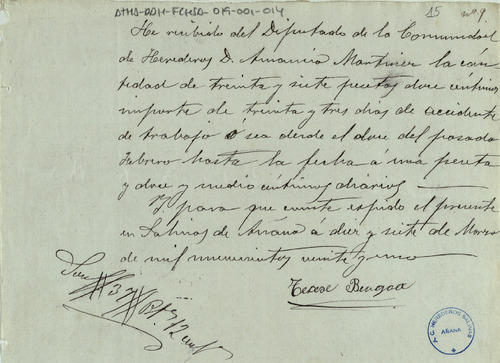 ATHA-DAH-FCHSA-019-001-014
15 nº 9.
He recibido del Diputado de la Comunidad
de Herederos D. Amancio Martinez la can
tidad de treinta y siete pesetas doce centimos
importe de treinta y tres dias de accidente
de trabajo ó sea desde el doce del pasado
Febrero hasta la fecha a una peseta
y doce y medio centimos diarios.
Y para que conste expido el presente
en Salinas de Añana á diez y siete de Marzo
de mil novecientos veinte y uno
Son # 37 Pts 12 cents
C. HEREDEROS SALINAS
AÑANA